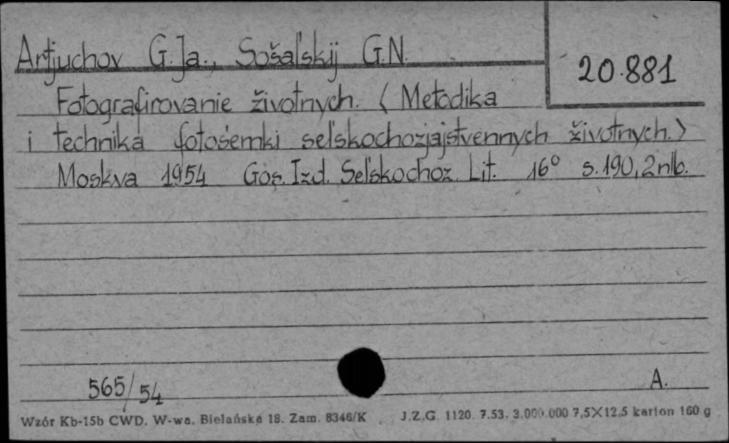 Artjuchov G.Ja., Sošal'skij G.N.
20.881
Fotografirovanie životnych. (Metodika
i technika fotos'emki sel'skochozjajstvennych životnych.)
Moskva 1954 Gos. Izd. Sel'skochoz. Lit. 16° s. 190, 2 nlb.
565/54
A.
Wzór Kb-15b CWD. W-wa. Bielańska 18. Zam. 8346/K J.Z.G. 1120. 7.53. 3.000.000 7,5×12,5 karton 160 g